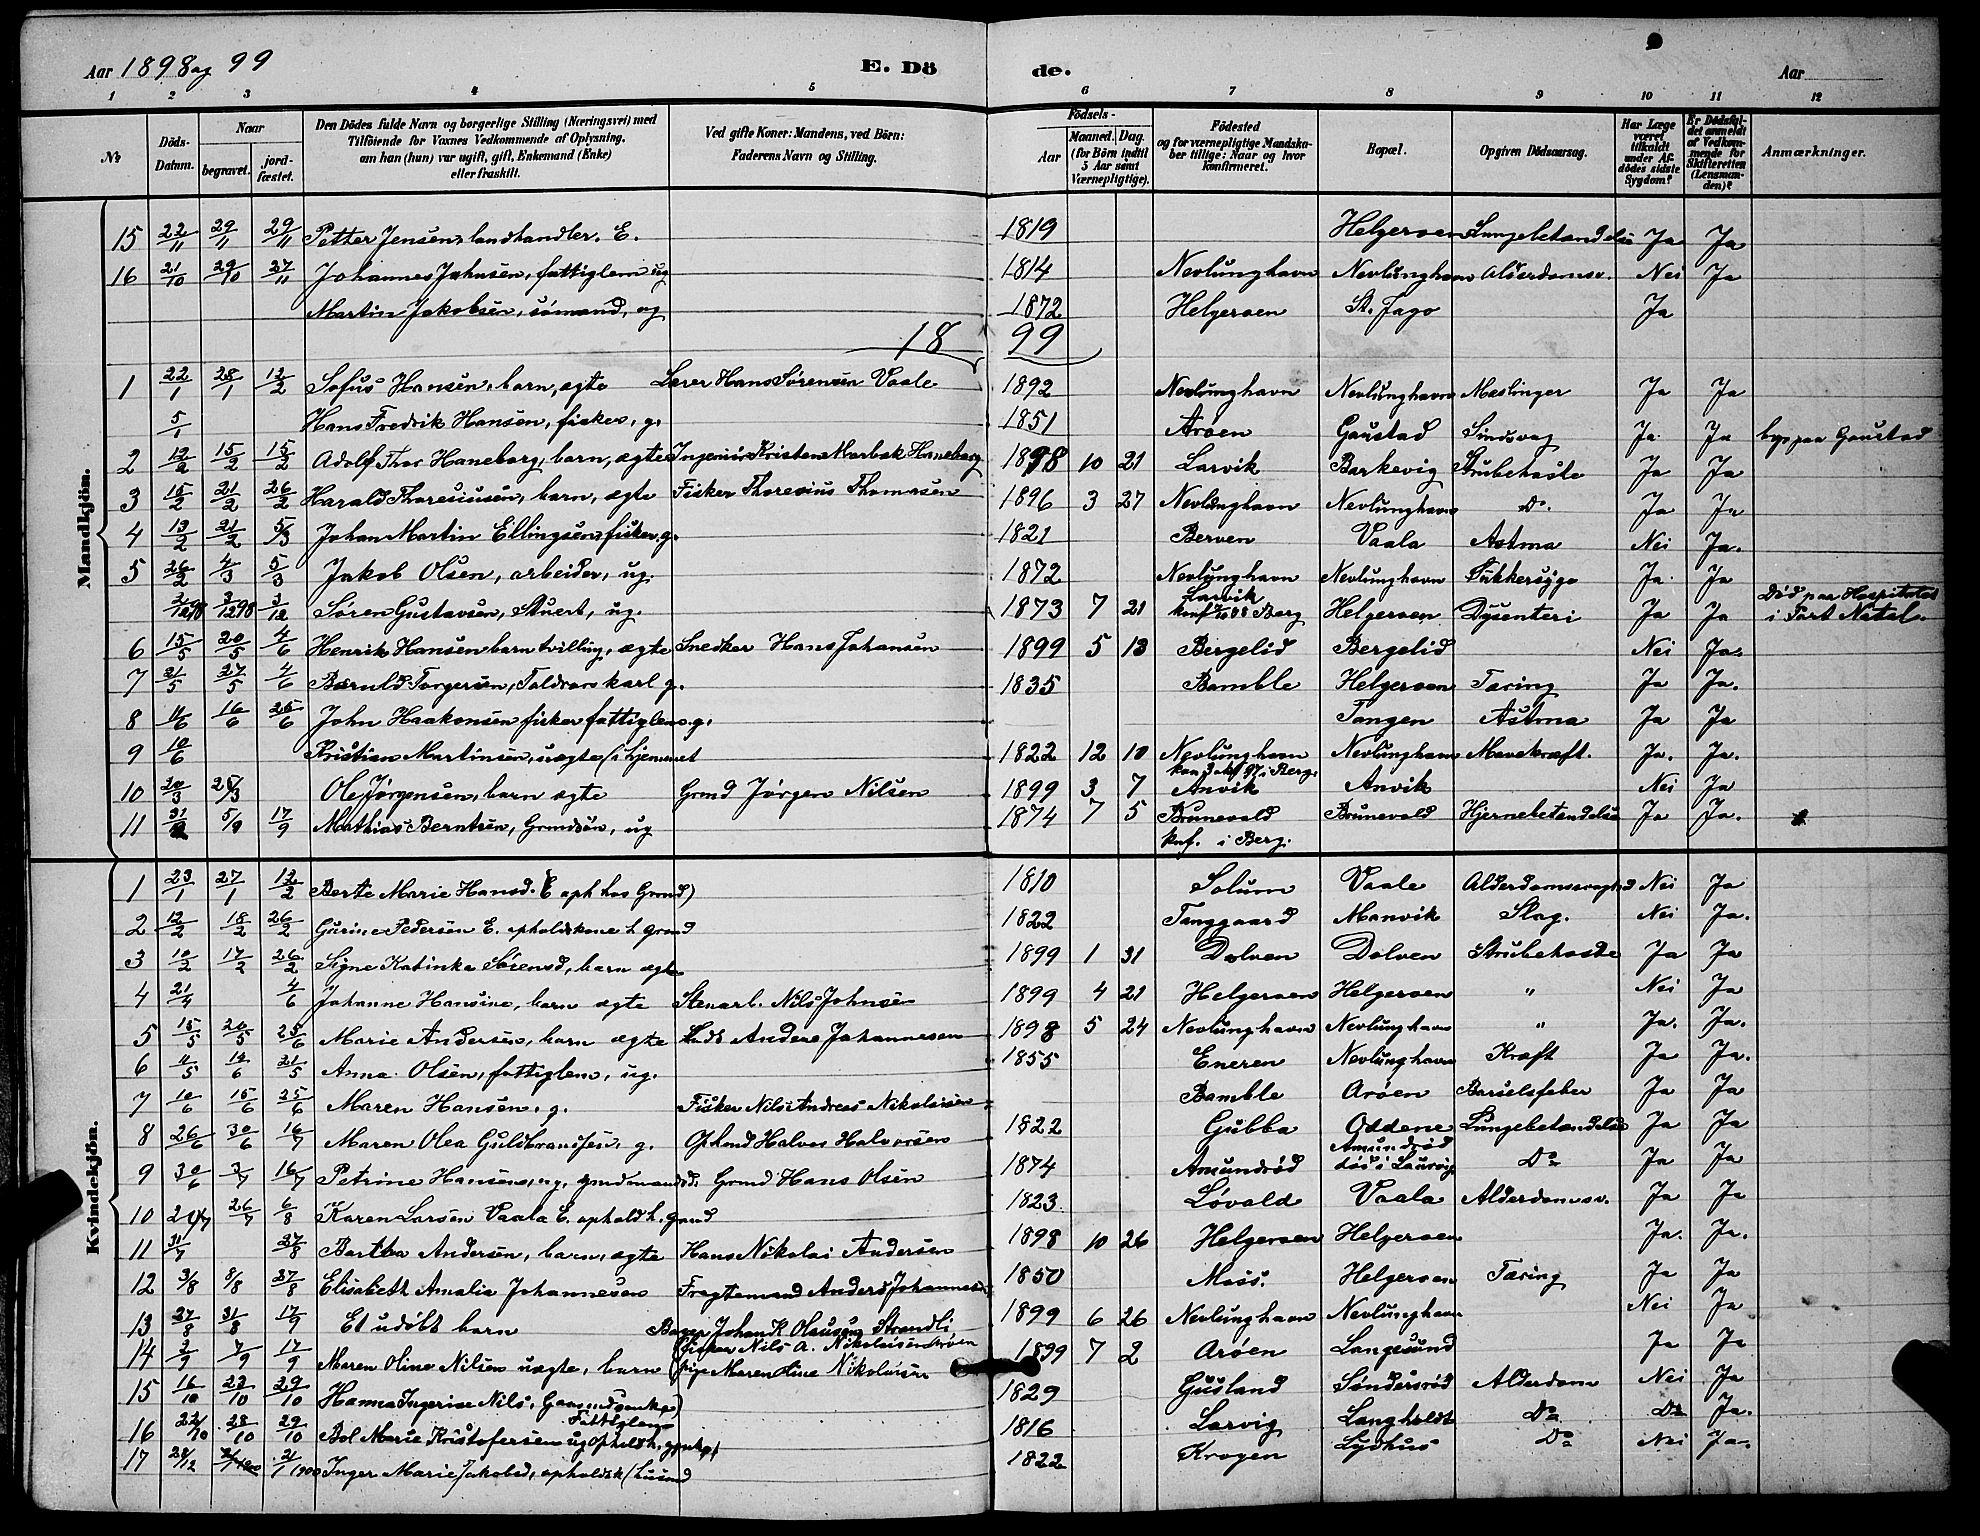 Aar 1898 og 99 E. Dö de. Aar
1 2 3 4 5 6 7 8 9 10 11 12
№ Döds-Datum. Naar begravet. jord-fæstet. Den Dödes fulde Navn og borgerlige Stilling (Næringsvei) med Tilföiende for Voxnes Vedkommende af Oplysning, om han (hun) var ugift, gift, Enkemand (Enke) eller fraskilt. Ved gifte Koner: Mandens, ved Börn: Faderens Navn og Stilling. Födsels- Aar Maaned. Dag. (for Börn indtil 5 Aar samt Værnepligtige). Födested og for værnepligtige Mandskaber tillige: Naar og hvor konfirmeret. Bopæl. Opgiven Dödsaarsag. Har Læge været tilkaldt under Afdödes sidste Sygdom? Er Dödsfaldet anmeldt af Vedkommende for Skifteretten (Lensmanden)? Anmærkninger.
Mandkjön.
15 22/11 29/11 29/11 Petter Jensen, landhandler. E. 1819 Helgeroen Lungebetændelse Ja Ja
16 21/10 29/10 27/11 Johannes Jahnsen, fattiglem ug 1814 Nevlunghavn Nevlunghavn Alderdomsv. Nei Ja
Martin Jakobsen, sømand, ug 1872 Helgeroen St. Jago Ja
18 99
1 22/1 28/1 12/2 Sofus Hansen, barn, ægte Lærer Hans Sørensen Vaale 1892 Nevlunghavn Nevlunghavn Mæslinger Ja Ja
5/1 Hans Fredrik Hansen, fisker, g. 1851 Arøen Gaustad Sindsvag Ja Ja paa Gaustad
2 12/2 15/2 15/2 Adolf Thor Haneborg, barn, ægte Ingeniør Kristen Marbak Haneborg 1898 10 21 Larvik Barkevig Strubehoste Ja Ja
3 15/2 21/2 26/2 Harald Thoresiusen, barn, ægte Fisker Thoresius Thomasen 1896 3 27 Nevlunghavn Nevlunghavn Do. Ja Ja
4 13/2 21/2 5/3 Johan Martin Ellingsen, fisker, g. 1821 Berven Vaala Astma Nei Ja.
5 26/2 4/3 5/3 Jakob Olsen, arbeider, ug. 1872 Nevlunghavn Nevlunghavn Sukkersyge Ja. Ja
3/12 98 3/12 Søren Gustavsen, Stuert, ug. 1873 7 21 Larvik Berg Helgeroen Dysenteri Ja Ja Død paa Hospitalet i Port Natal.
6 15/5 20/5 4/6 Henrik Hansen barn tvilling, ægte Snedker Hans Johansen 1899 5 13 Bergelid Bergelid Nei Ja.
7 21/5 27/5 4/6 Bærnld Torgersen, Foldrøvskarl g. 1835 Bamble Helgeroen Tæring Ja Ja.
8 11/6 16/6 25/6 John Haakonsen fisker fattiglem g. Tangen Astma Ja Ja
9 10/6 Kristian Martinsen, uægte (i hjemmet 1822 12 10 Nevlunghavn Nevlunghavn Mavekræft. Ja. Ja.
10 20/3 25/3 Ole Jørgensen, barn ægte Grmd Jørgen Nilsen 1899 3 7 Anvik Anvik Nei Ja
11 31/8 5/9 17/9 Mathias Berntsen, Grmdsøn, ug 1874 7 5 Brunevald knf. i Berg. Brunevald Hjernebetændelse Ja Ja.
Kvindekjön.
1 23/1 27/1 12/2 Berte Marie Hansd. E oph hos Grmd) 1810 Solum Vaale Alderdomssvaghed Nei Ja
2 12/2 18/2 26/2 Gurine Pedersen E. opholdskone h grmd 1822 Tanggaard Manvik Slag. Nei Ja.
3 10/2 17/2 26/2 Signe Katinka Sørensd, barn ægte 1899 1 31 Dolven Dolven Strubehoste Ja Ja
4 21/4 4/6 Johanne Hansine, barn ægte Stenarb. Nils Johnsen 1899 4 21 Helgeroen Helgeroen " Nei Ja
5 15/5 20/5 25/6 Marie Andersen, barn ægte Anders Johannesen 1898 5 24 Nevlunghavn Nevlunghavn " Ja. Ja.
6 11/5 14/6 21/5 Anna Olsen, fattiglem, ug. 1855 Eneren Nevlunghavn Kræft Ja Ja.
7 10/6 15/6 25/6 Maren Hansen, g. Fisker Nils Andreas Nikolaisen Bamble Arøen Barselsfeber Ja Ja
8 26/6 30/6 16/7 Maren Olea Guldbrandsen, g. Halvor Halvorsen 1822 Gubba Oddene Lungebetændelse Ja Ja
9 30/6 3/7 16/7 Petrine Hansen, ug. grmd Hans Olsen 1874 Amundrød Amundrød død i Laurvig Do Ja Ja
10 20/7 26/7 6/8 Karen Larsen Vaala E. ophold h. grmd 1823 Løvald Vaala Alderdomsv. Ja Ja
11 31/7 27/8 Bertha Andersen, barn, ægte Hans Nikolai Andersen 1898 10 26 Helgeroen Helgeroen Ja. Ja.
12 3/8 8/8 27/8 Elisabeth Amalia Johannesen Fragtemand Anders Johannesen 1850 Moss. Helgeroen Tæring Ja Ja
13 27/8 31/8 17/9 Et udøbt barn Bager Johan K Olausen Strandli 1899 6 26 Nevlunghavn Nevlunghavn Nei Ja
14 2/9 7/9 17/9 Maren Oline Nilsen uægte, barn (fisker Nils A. Nikolaisen Arøen pige Maren Oline Nikolaisen 1899 7 2 Arøen Langesund Ja Ja
15 16/10 23/10 29/10 Hanna Ingerine Nils, 1829 Gusland Søndersrød Alderdom Nei Ja
16 22/10 28/10 29/10 Bol Marie Kristofersen ug Fattiglem 1816 Larvig Langholdt Do Do Ja.
17 28/12 21/1 1900 Inger Marie Jakobsd, opholdsk 1822 Krogen Lydhus Do Nei Ja.